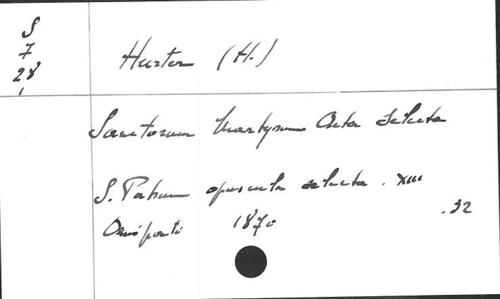 S
7
28
Hurter (H.)
Sanctorum Martyrum Acta Selecta
S. Patrum opuscula selecta. XIII
Oeniponti 1870 .32